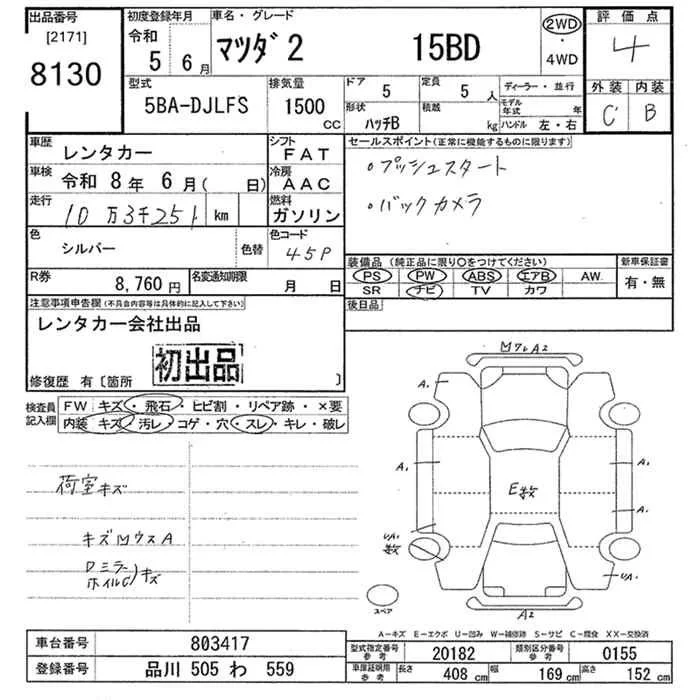 出品番号
[2171]
8130
初度登録年月
令和
5 6 月
車名・グレード
マツダ2 15BD
2WD
・
4WD
評価点
4
外装 内装
C' B
型式
5BA-DJLFS
排気量
1500
CC
ドア
5
定員
5 人
形状
ハッチB
積載
kg
ディーラー・並行
モデル年式 年
ハンドル 左・右
車歴
レンタカー
車検
令和 8 年 6 月 ( 日)
走行
10 万3千251 km
色
シルバー
色替
シフト
FAT
冷房
AAC
燃料
ガソリン
色コード
45P
R券
8,760 円
名変通知期限
月 日
セールスポイント(正常に機能するものに限ります)
・プッシュスタート
・バックカメラ
装備品 (純正品に限り○をつけてください)
PS PW ABS エアB AW
SR ナビ TV カワ
新車保証書
有・無
後日品
注意事項申告欄(不具合内容等は具体的に記入して下さい)
レンタカー会社出品
初出品
修復歴 有〔箇所 〕
検査員
記入欄
FW キズ・飛石・ヒビ割・リペア跡・×要
内装 キズ・汚レ・コゲ・穴・スレ・キレ・破レ
荷室キズ
キズ
ミラー
ホイル
キズ
A2
A.
A.
A.
A.
E数
UA.
数
UA.
A2
スペア
A−キズ E−エクボ U−凹み W−補修跡 S−サビ C−腐食 XX−交換済
車台番号 803417
登録番号 品川 505 わ 559
型式指定番号
参考
20182
類別区分番号
参考
0155
車庫証明用
参考
長さ 408 cm
幅 169 cm
高さ 152 cm